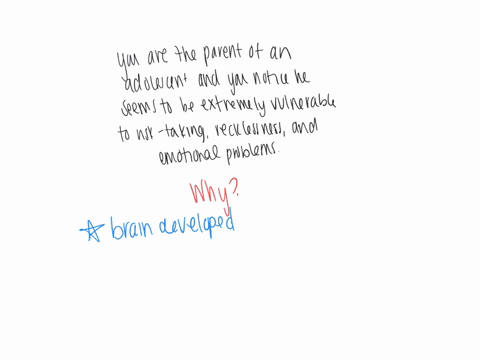 you are the parent of an
adolescent and you notice he
seems to be extremely vulnerable
to risk-taking, recklessness, and
emotional problems.
Why?
☆ brain developed